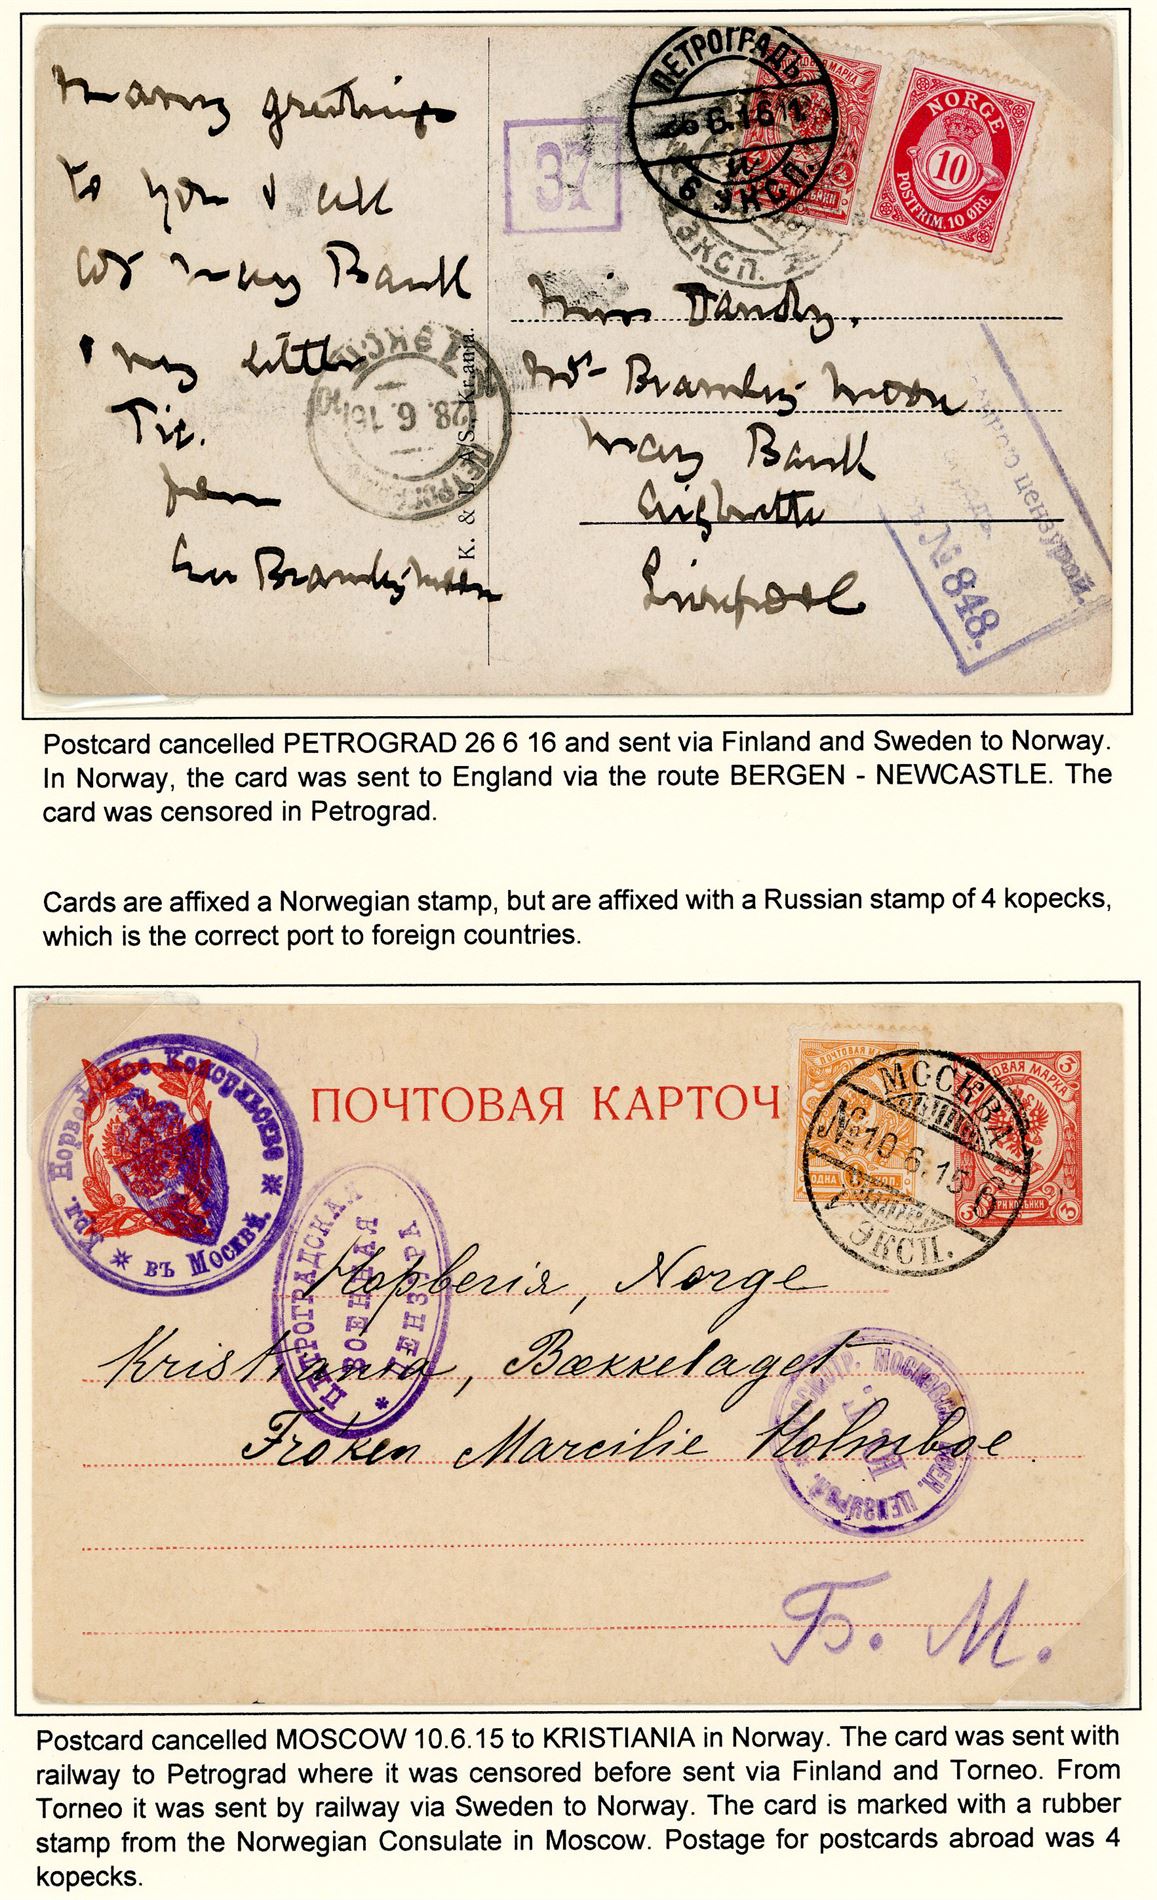 Many greetings
to you & all
at May Bank
& my little
Tie.
from
Bramley Moore
K. & L. A/S., Kr.ania.
37
ПЕТРОГРАДЪ
26 6.16 11
6 ЭКСП.
МАРКА
КОПѢЙКИ
NORGE
10
POSTFRIM. 10 ØRE
ЭКСП.
1 ЭКСП.
28. 6. 16
Miss Dandy.
Bramley Moore
May Bank
Aigburth
Liverpool
цензурой.
№ 848.
Postcard cancelled PETROGRAD 26 6 16 and sent via Finland and Sweden to Norway.
In Norway, the card was sent to England via the route BERGEN - NEWCASTLE. The
card was censored in Petrograd.
Cards are affixed a Norwegian stamp, but are affixed with a Russian stamp of 4 kopecks,
which is the correct port to foreign countries.
Кор. Норвежское Консульство
въ Москвѣ.
ПОЧТОВАЯ КАРТОЧ
ПОЧТОВАЯ
ОДНА КОП.
МОСКВА
№ 10 6.15 6
ЭКСП.
3
МАРКА
ТРИ КОПѢЙКИ
3
ПЕТРОГРАДСКАЯ
ВОЕННАЯ
ЦЕНЗУРА
Норвегія, Norge
Kristiania, Bækkelaget
Frøken Marcilie Holmboe
МОСКОВСК. ВОЕН. ЦЕНЗУРОЙ.
Б. М.
Postcard cancelled MOSCOW 10.6.15 to KRISTIANIA in Norway. The card was sent with
railway to Petrograd where it was censored before sent via Finland and Torneo. From
Torneo it was sent by railway via Sweden to Norway. The card is marked with a rubber
stamp from the Norwegian Consulate in Moscow. Postage for postcards abroad was 4
kopecks.